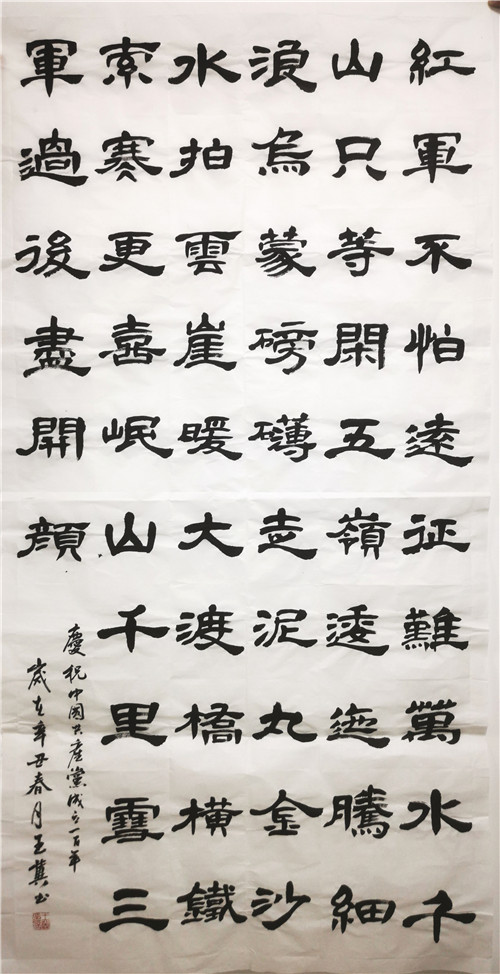 紅軍不怕遠征難萬水千
山只等閑五嶺逶迤騰細
浪烏蒙磅礴走泥丸金沙
水拍雲崖暖大渡橋橫鐵
索寒更喜岷山千里雪三
軍過後盡開顏
慶祝中國共產黨成立一百年
歲在辛丑春月王冀書